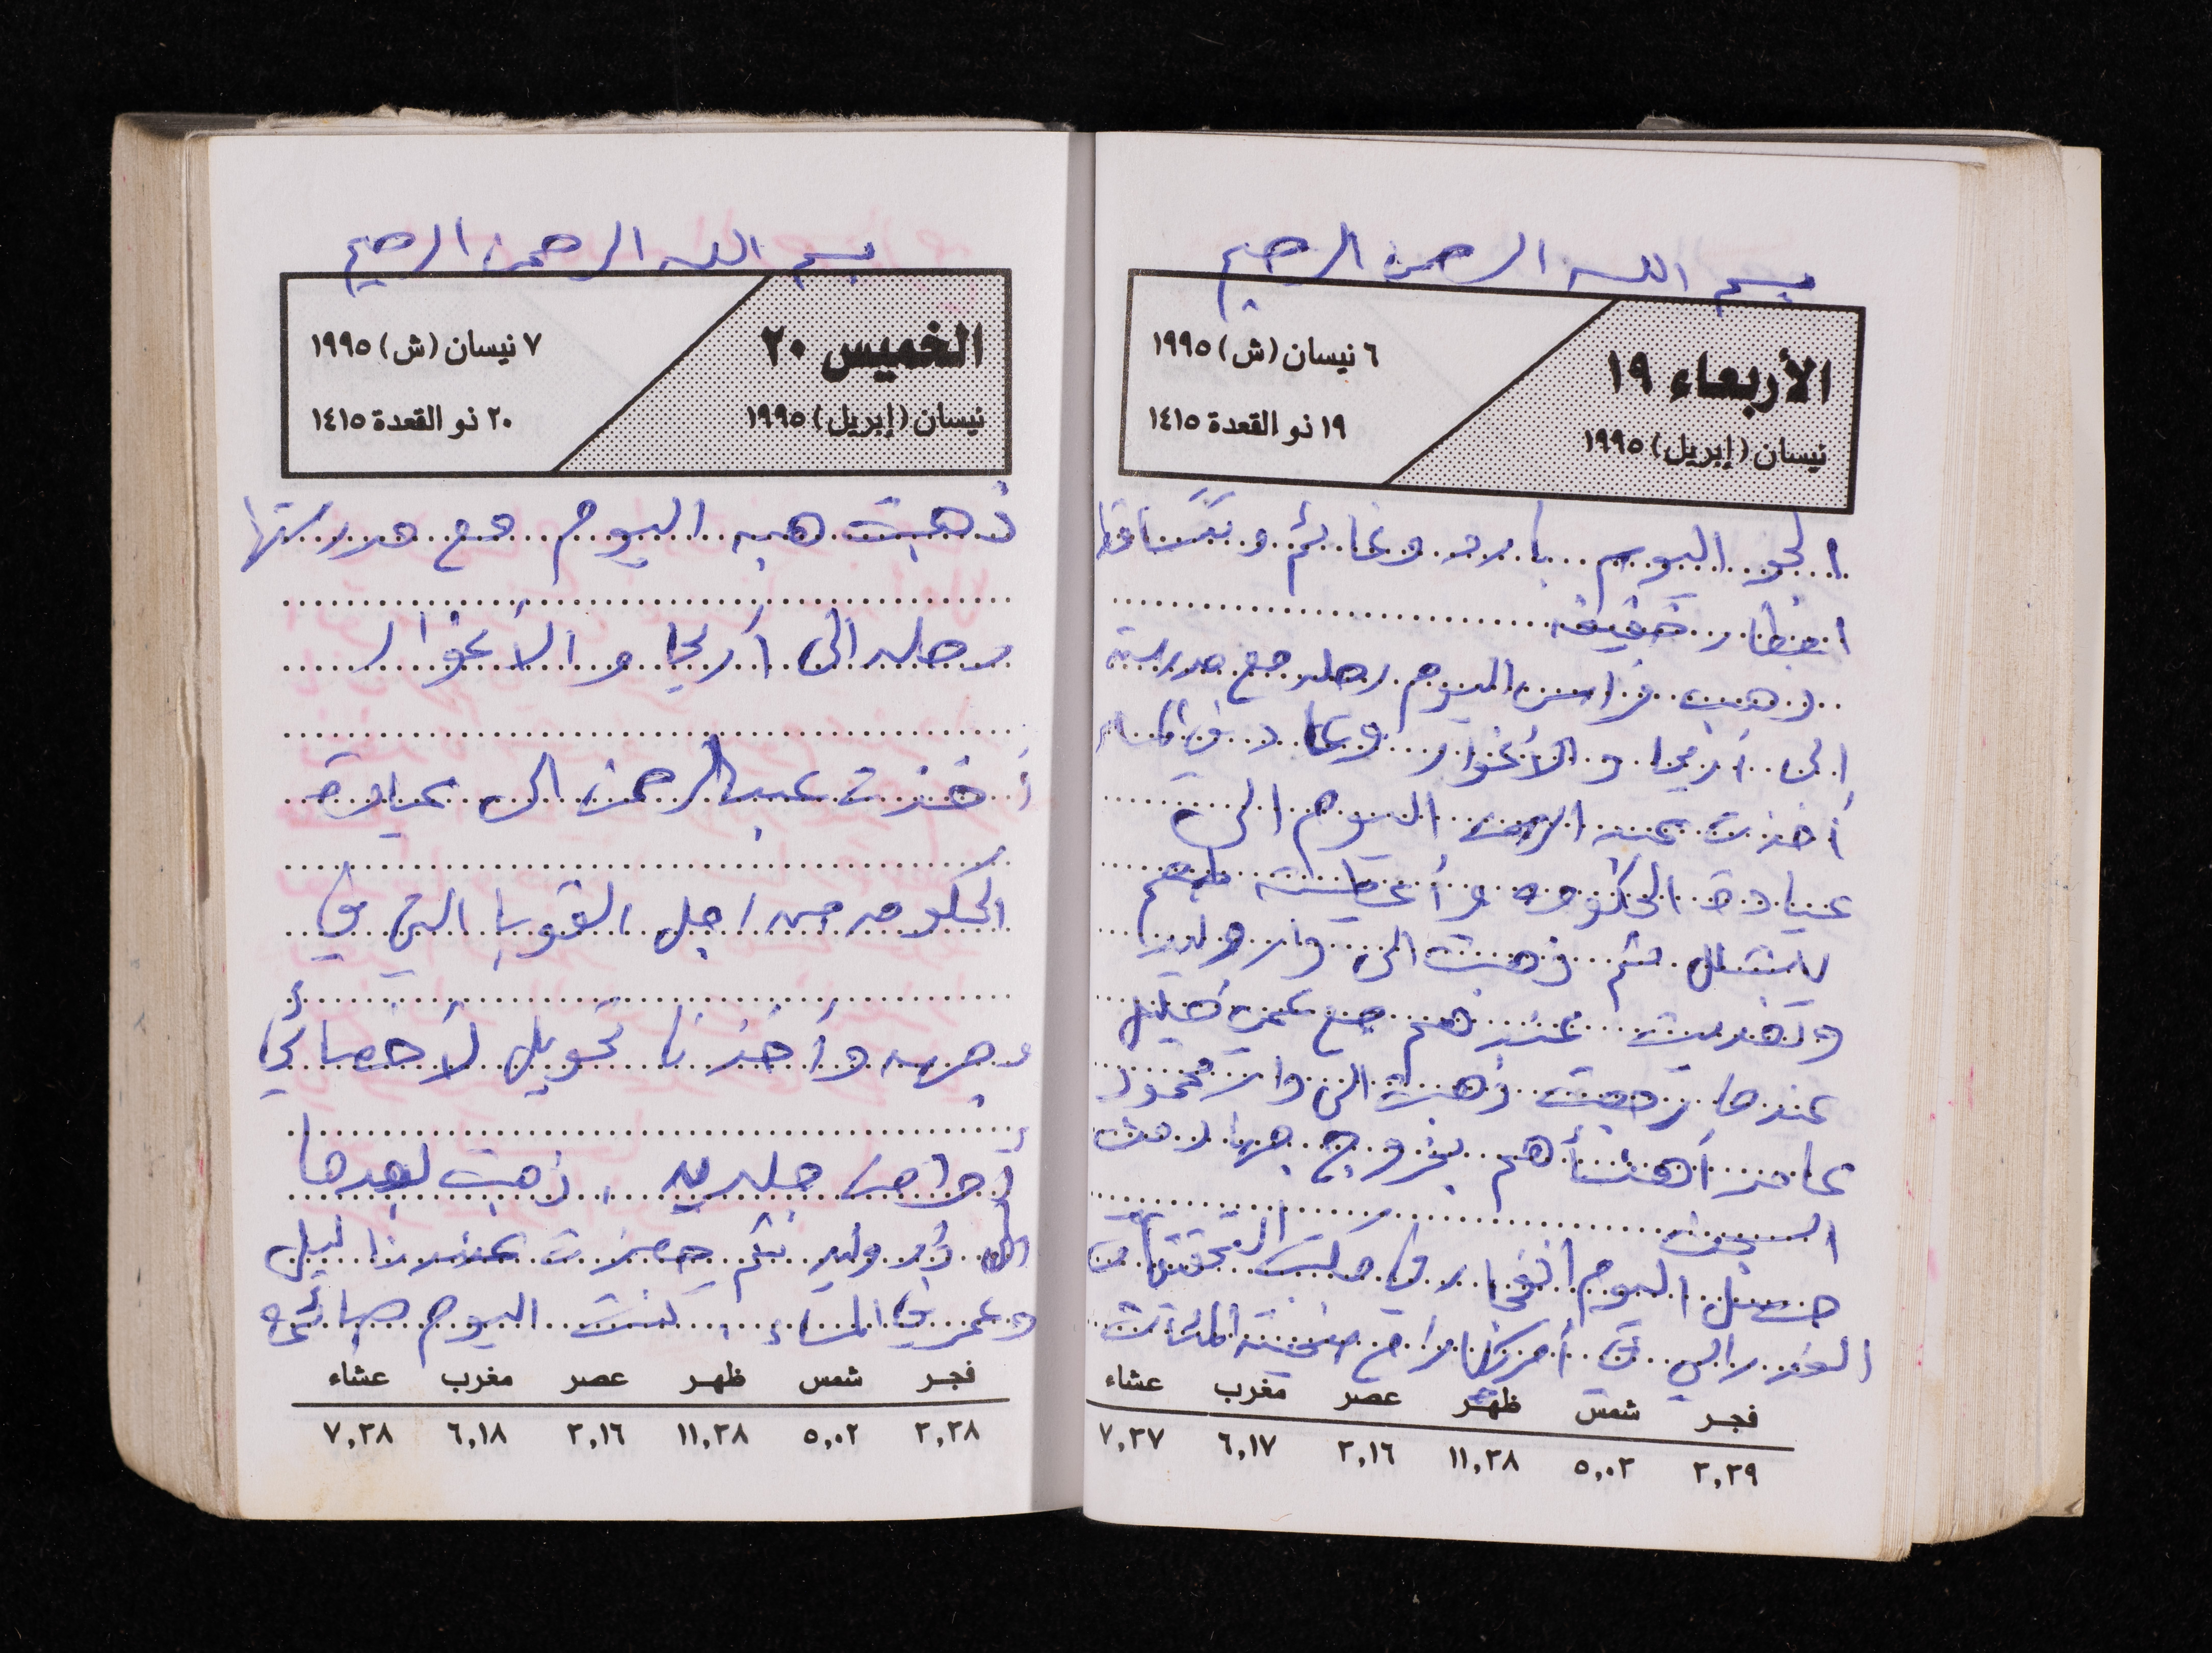 بسم الله الرحمن الرحيم
الأربعاء ١٩
نيسان (إبريل) ١٩٩٥
٦ نيسان (ش) ١٩٩٥
١٩ ذو القعدة ١٤١٥
الجو اليوم بارد وغائم وتتساقط
امطار خفيفه
ذهب فراس اليوم رحله مع مدرسته
الى أريحا والأغوار وعاد في المساء
أخذت عبد الرحمن اليوم الى
عيادة الحكومه وأعطيته طعم
ثم ذهبت الى دار وليد
وتغديت عندهم مع عمي خليل
عندما رجعت ذهبت الى دار محمود
عامر أهنئأهم بخروج جهاد من
السجن
حصل اليوم انفجار في مكتب التحقيقات
الفدرالي في أمريكا راح ضحيته المئات
فجر شمس ظهر عصر مغرب عشاء
٣,٣٩ ٥,٠٣ ١١,٣٨ ٣,١٦ ٦,١٧ ٧,٣٧
بسم الله الرحمن الرحيم
الخميس ٢٠
نيسان (إبريل) ١٩٩٥
٧ نيسان (ش) ١٩٩٥
٢٠ ذو القعدة ١٤١٥
ذهبت هبه اليوم مع مدرستها
رحله الى أريحا والأغوار
أخذت عبد الرحمن الى عيادة
الحكومه من اجل القوبا التي في
وجهه وأخذنا تحويل لأخصائي
أمراض جلديه . ذهبت بعدها
الى دار وليد ثم حضرت عندنا ليلى
وعمر في المساء . كنت اليوم صائمه
فجر شمس ظهر عصر مغرب عشاء
٣,٣٨ ٥,٠٢ ١١,٣٨ ٣,١٦ ٦,١٨ ٧,٣٨